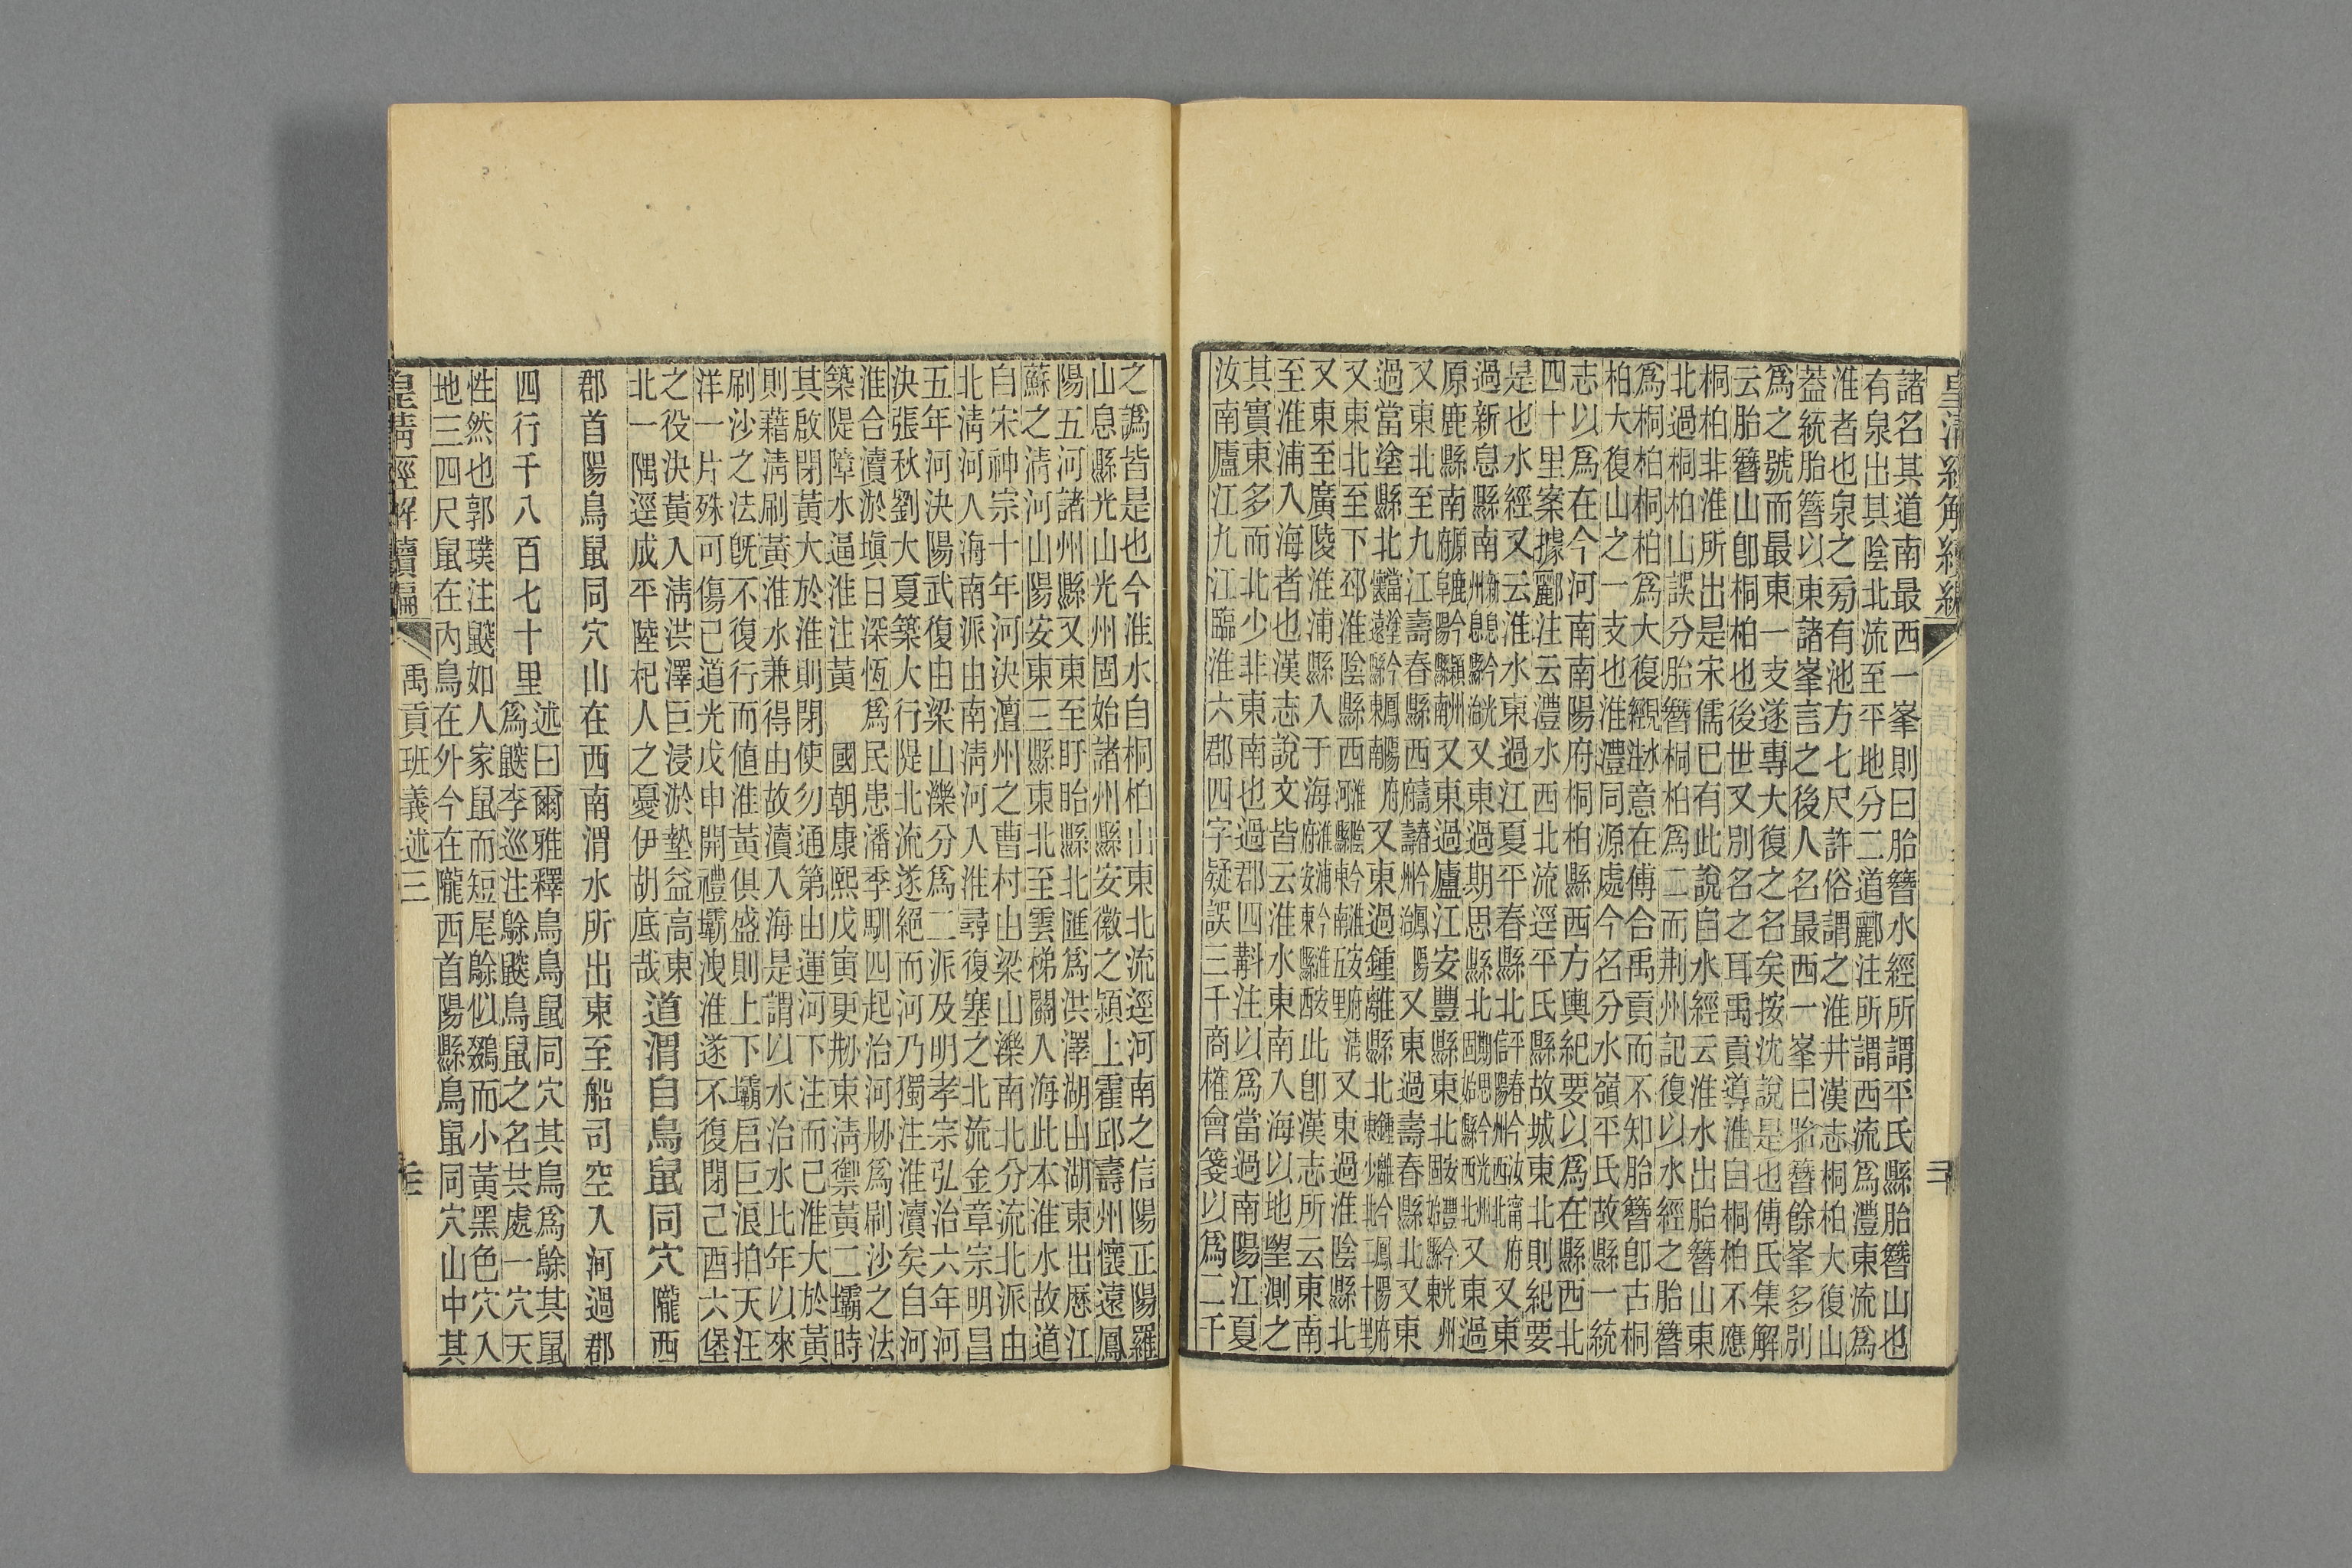 皇清經解續編
諸名其道南最西一峯則曰胎簪水經所謂平氏縣胎簪山也
有泉出其陰北流至平地分二道酈注所謂西流爲澧東流爲
淮者也泉之旁有池方七尺許俗謂之淮井漢志桐柏大復山
葢統胎簪以東諸峯言之後人名最西一峯曰胎簪餘峯多別
爲之號而最東一支遂專大復之名矣按沈說是也傅氏集解
云胎簪山卽桐柏也後世又別名之耳禹貢導淮自桐柏不應
桐柏非淮所出是宋儒巳有此說自水經云淮水出胎簪山東
北過桐柏山誤分胎簪桐柏爲二而荆州記復以水經之胎簪
爲桐柏桐柏爲大復見水經注意在傅合禹貢而不知胎簪卽古桐
柏大復山之一支也淮澧同源處今名分水嶺平氏故縣一統
志以爲在今河南南陽府桐柏縣西方輿紀要以爲在縣西北
四十里案據酈注云澧水西北流逕平氏縣故城東北則紀要
是也水經又云淮水東過江夏平春縣北平春今汝寧府信陽州西北又東
過新息縣南新息今光州息縣治又東過期思縣北期思今光州固始縣西北又東過
原鹿縣南原鹿今潁州府阜陽縣南又東過廬江安豐縣東北安豐今光州固始縣東
又東北至九江壽春縣西壽春今鳳陽府壽州治又東過壽春縣北又東
過當塗縣北當塗今鳳陽府懷遠縣東南又東過鍾離縣北鍾離今鳳陽府東少北二十里
又東北至下邳淮陰縣西淮陰今淮安府清河縣東南五里又東過淮陰縣北
又東至廣陵淮浦縣入于海淮浦今淮安府安東縣西此卽漢志所云東南
至淮浦入海者也漢志說文皆云淮水東南入海以地望測之
其實東多而北少非東南也過郡四斠注以爲當過南陽江夏
汝南廬江九江臨淮六郡四字疑誤三千商榷會箋以爲二千
之譌皆是也今淮水自桐柏山東北流逕河南之信陽正陽羅
山息縣光山光州固始諸州縣安徽之潁上霍邱壽州懷遠鳳
陽五河諸州縣又東至盱眙縣北匯爲洪澤湖山湖東出歷江
蘇之清河山陽安東三縣東北至雲梯關入海此本淮水故道
自宋神宗十年河決澶州之曹村山梁山濼南北分流北派由
北清河入海南派由南清河入淮尋復塞之北流金章宗明昌
五年河決陽武復由梁山濼分爲二派及明孝宗弘治六年河
決張秋劉大夏築大行隄北流遂絕而河乃獨注淮瀆矣自河
淮合瀆淤塡日深恆爲民患潘季馴四起治河剏爲刷沙之法
築隄障水逼淮注黃國朝康熙戊寅更剏東清禦黃二壩時
其啟閉黃大於淮則閉使勿通第由運河下注而已淮大於黃
則藉清刷黃淮水兼得由故瀆入海是謂以水治水比年以來
刷沙之法旣不復行而值淮黃俱盛則上下壩启巨浪拍天汪
洋一片殊可傷已道光戊申開禮壩洩淮遂不復閉己酉六堡
之役決黃入清洪澤巨浸淤墊益高東
北一隅逕成平陸杞人之憂伊胡底哉道渭自鳥鼠同穴隴西
郡首陽鳥鼠同穴山在西南渭水所出東至船司空入河過郡
四行千八百七十里述曰爾雅釋鳥鳥鼠同穴其鳥爲鵌其鼠
爲鼵李巡注鵌鼵鳥鼠之名共處一穴天
性然也郭璞注鼵如人家鼠而短尾鵌似鵽而小黃黑色穴入
地三四尺鼠在內鳥在外今在隴西首陽縣鳥鼠同穴山中其
皇清經解續編
禹貢班義述三